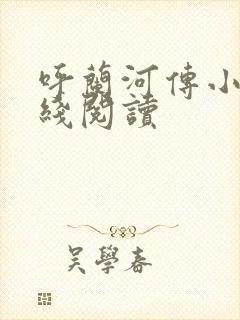 呼蘭河傳小
綫閱讀
吴學春